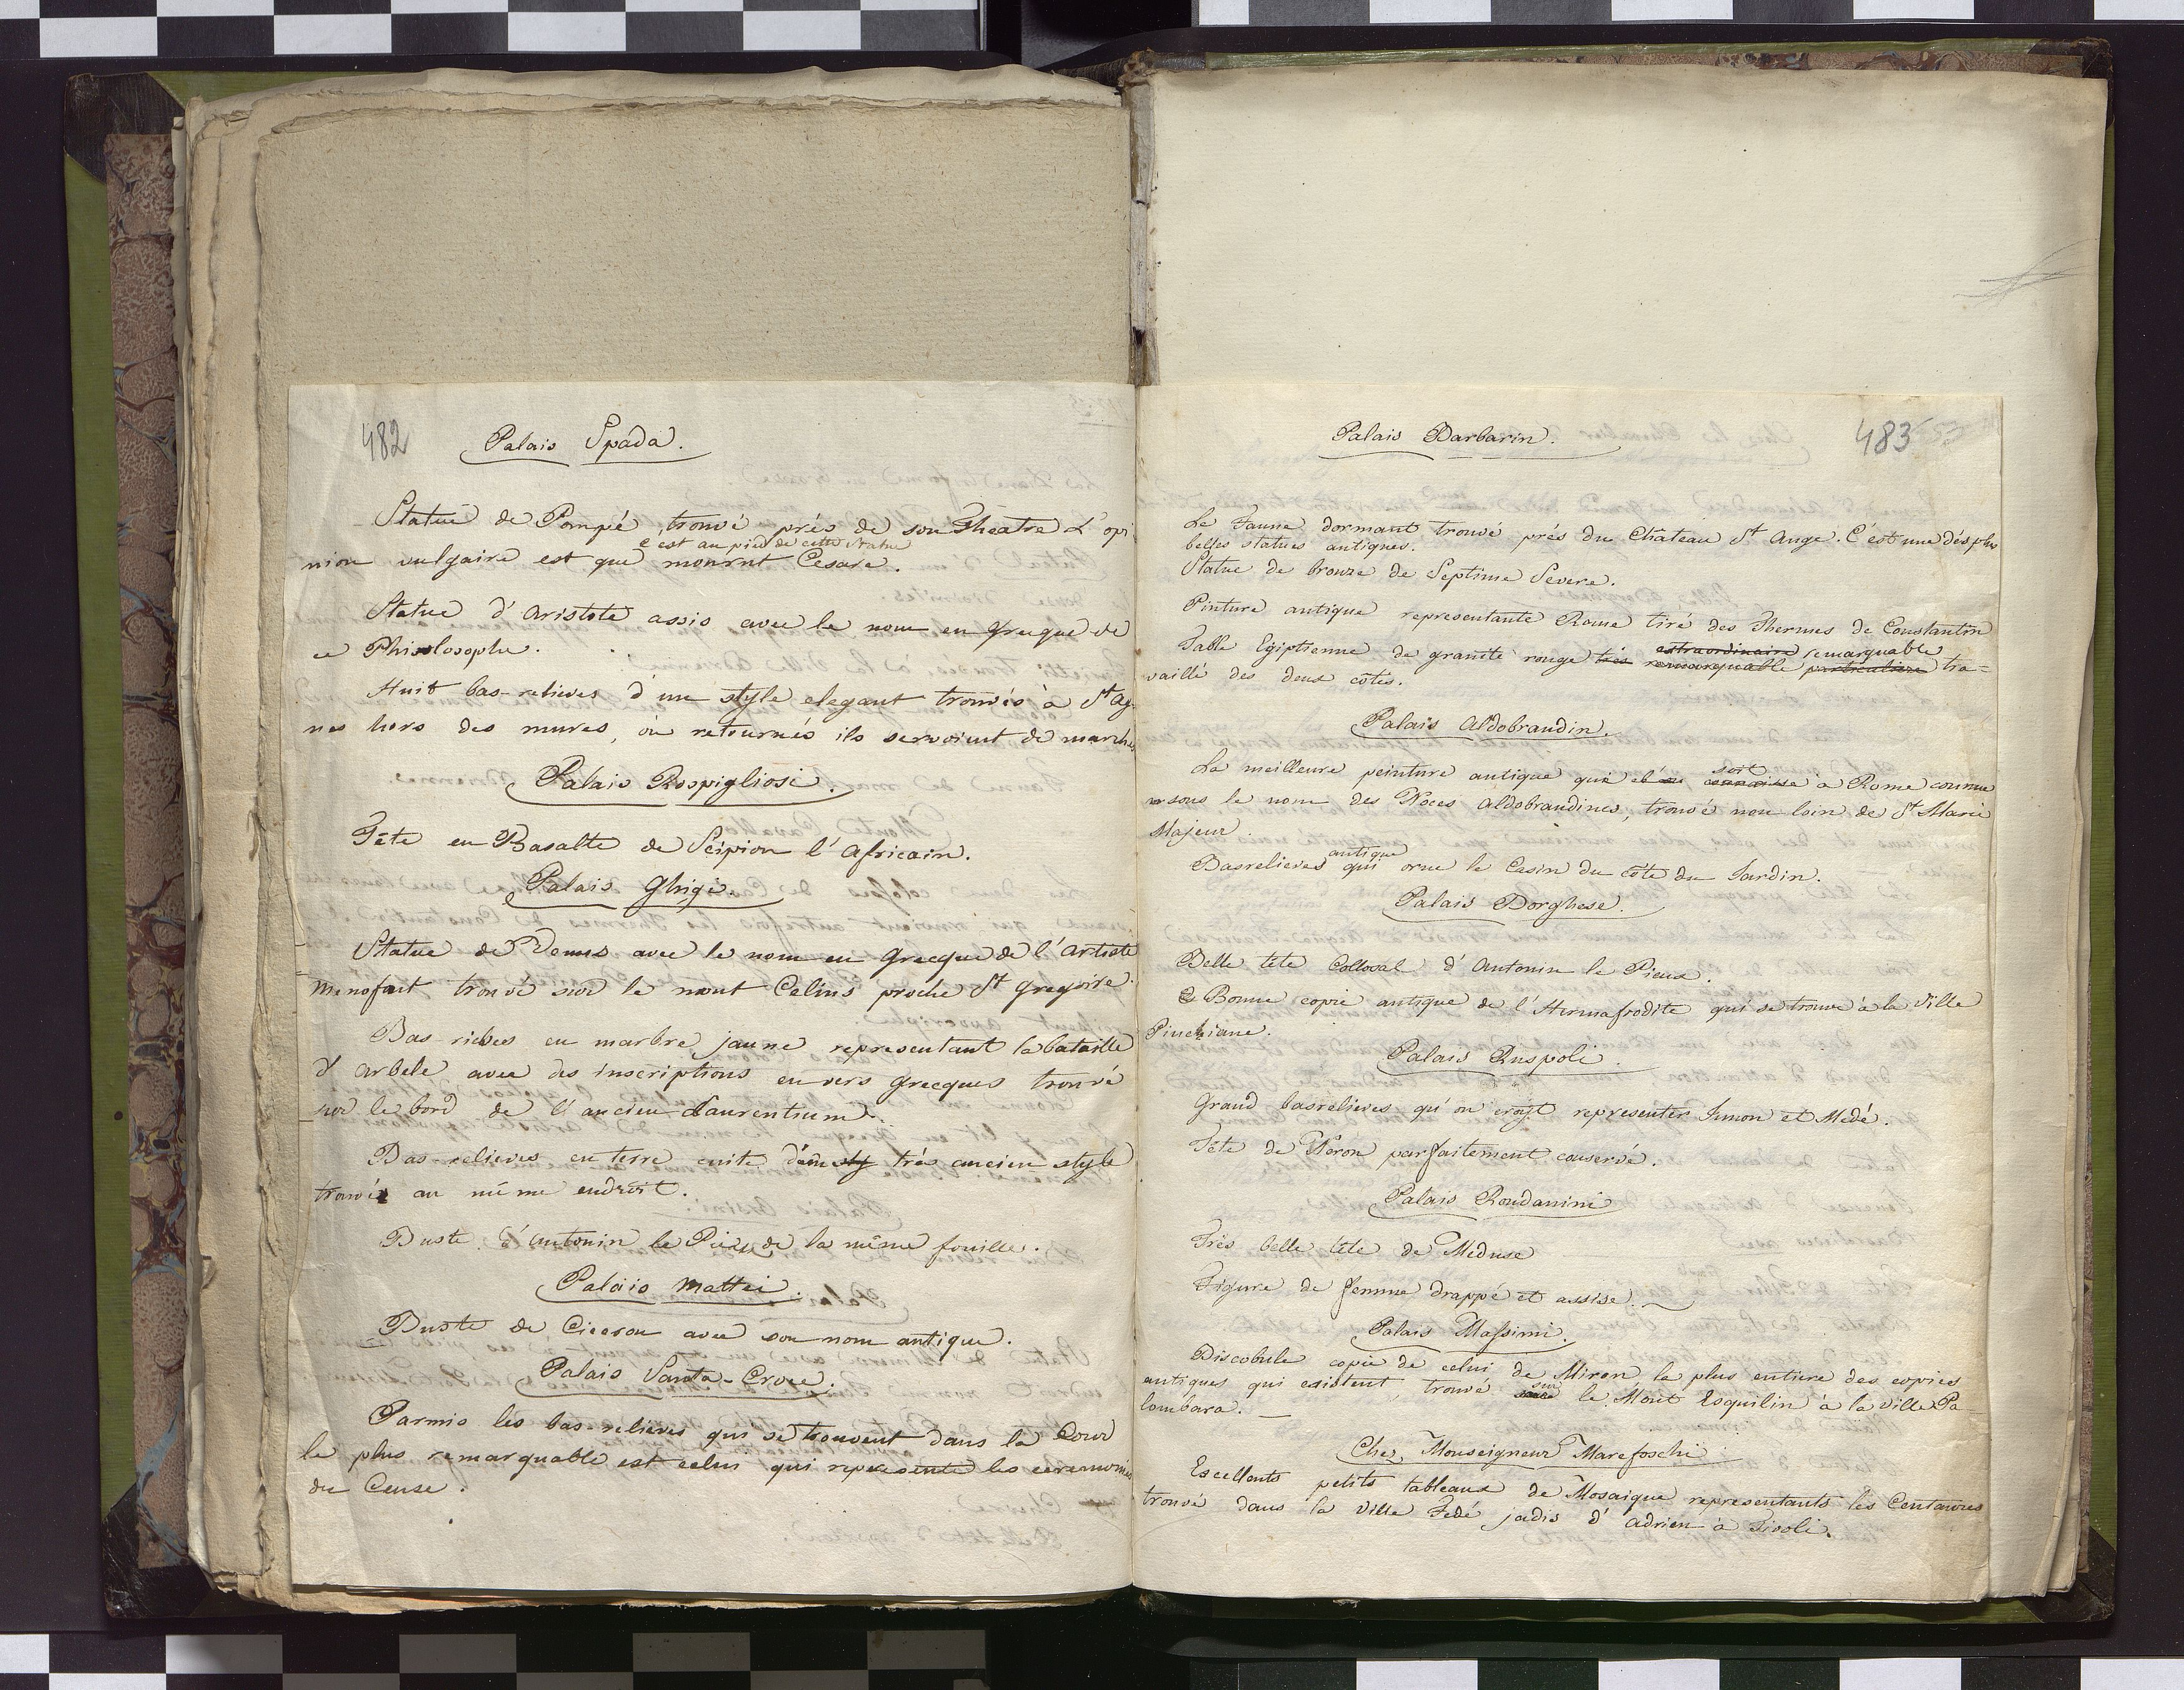 482
Palais Spada.
Statue de Pompé trouvé près de son Theatre L'opi
c'est au pied de cette Statue
nion vulgaire est que mourut Cesare.
Statue d'Aristote assis avec le nom en grecque de
ce Philosophe.
Huit bas-relieves d'un style elegant trouvés à St Ag-
nes hors des mures, où retournés ils servoient de marches
Palais Rospigliosi.
Tête en Basalte de Scipion l'Africain.
Palais Ghigi.
Statue de Venus avec le nom en grecque de l'Artiste
Menofant trouvé sur le mont Celius proche St gregoire.
Bas-rielves en marbre jaune representant la bataille
d'arbele avec des inscriptions en vers grecques trouvé
sur le bord de l'ancien Laurentium.
Bas-relieves en terre cuite d'un sty très ancien style
trouvés au même endroit.
Buste d'Antonin le Pieu de la même fouilles.
Palais Mattei.
Buste de Ciceron avec son nom antique.
Palais Santa-Croce.
Parmis les bas-relieves qui se trouvent dans la Cour
le plus remarquable est celui qui represente les ceremonies
du Cense.
483 53
Palais Barbarin.
Le Faune dormant trouvé prés du Château St Ange. C'est une dés plus
belles statues antiques.
Statue de bronze de Septime Severe.
Pinture antique representante Rome tiré des Thermes de Constantin
extraordinaire remarquable
Table Egiptienne de granite rouge très remarquable particuliere tra=
vaillé des deux côtes.
Palais Aldobrandin.
soit
La meilleure peinture antique qui connoisse à Rome connue
sous le nom des Noces Aldobrandines, trouvé non loin de St Marie
Majeur.
antique
Basrelieves qui orne le Casin du côté du Jardin.
Palais Borghese.
Belle tête Collosal d'Antonin le Pieux.
Bonne copie antique de l'Hermafrodite qui se trouve à la Ville
Pinchiane.
Palais Ruspoli.
Grand basrelieves qu'on croyt representer Junon et Médé.
Tête de Néron parfaitement conservé.
Palais Rondanini
Très belle tête de Meduse
Figure de femme drappé et assise.
Palais Massimi.
Discobule copie de celui de Miron, le plus entiere des copies
sur
antiques qui existent, trouvé le Mont Esquilin à la Ville Pa-
lombara.
Chez Monseigneur Marefoschi
Escellents petits tableaux de Mosaique representants les Centaures
trouvé dans la Ville Fedé jadis d'Adrien à Tivoli.